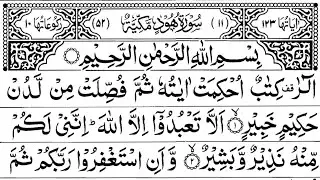 اٰیَاتُهَا ۱۲۳ (۱۱) سُوْرَةُ هُوْدٍ مَّكِّیَّةٌ (۵۲) رُكُوْعَاتُهَا ۱۰
بِسْمِ اللّٰهِ الرَّحْمٰنِ الرَّحِیْمِ
الٓرٰ قف كِتٰبٌ اُحْكِمَتْ اٰیٰتُهٗ ثُمَّ فُصِّلَتْ مِنْ لَّدُنْ
حَكِیْمٍ خَبِیْرٍ ۱ اَلَّا تَعْبُدُوْۤا اِلَّا اللّٰهَ ؕ اِنَّنِیْ لَكُمْ
مِّنْهُ نَذِیْرٌ وَّبَشِیْرٌ ۲ وَّاَنِ اسْتَغْفِرُوْا رَبَّكُمْ ثُمَّ